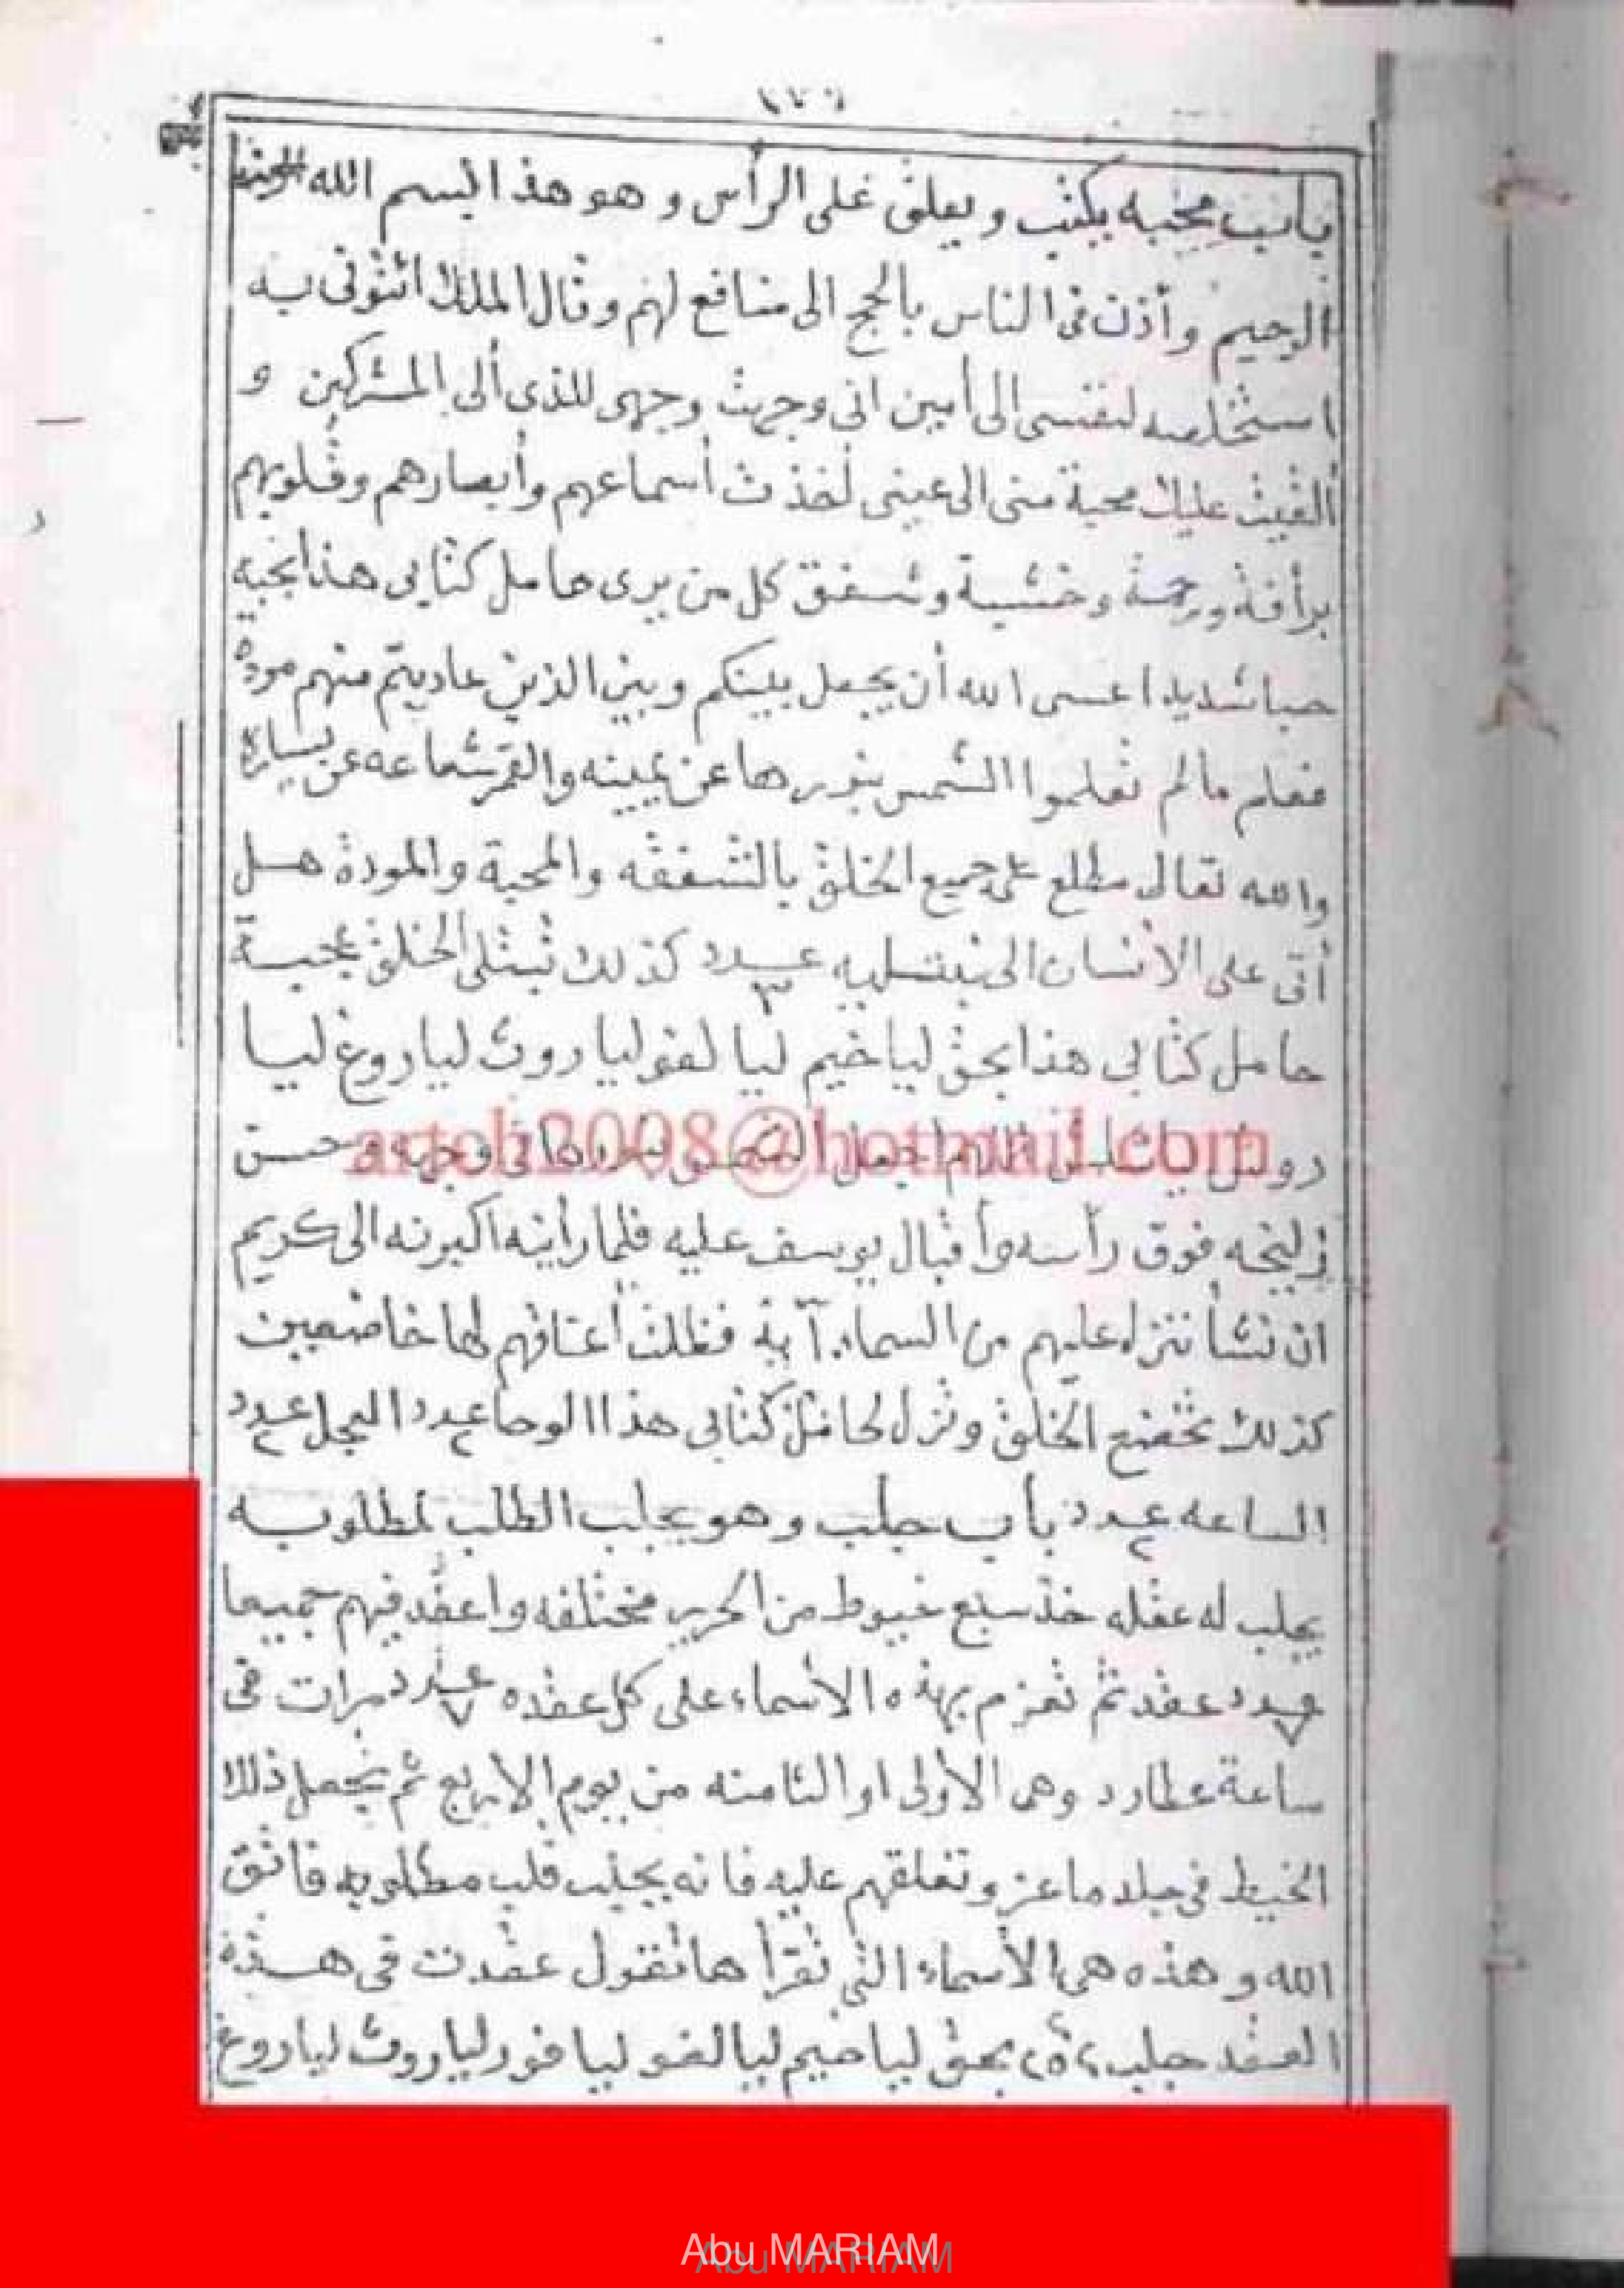 ١٧٦
باب محبه يكتب ويعلق على الرأس وهو هذا بسم الله الرحمن
الرحيم وأذن فى الناس بالحج الى منافع لهم وقال الملك ائتونى به
استخلصه لنفسى الى أمين انى وجهت وجهى للذى ألى المشركين و
ألقيت عليك محبة منى الى عينى أخذت أسماعهم وأبصارهم وقلوبهم
برأفة ورحمة وخشية وشفق كل من يرى حامل كتابى هذا بحبه
حبا شديدا عسى الله أن يجعل بينكم وبين الذين عاديتم منهم مودة
فعلم مالم تعلموا الشمس بنورها عن يمينه والقمر شعاعه عن يساره
والله تعالى مطلع على جميع الخلق بالشفقه والمحبة والمودة هل
أتى على الانسان الى نبتليه عدد ٣ كذلك تبتلى الخلق بمحبة
حامل كتابى هذا بحق لياخيم ليا لغو ليا روث لياروغ ليا
روش اللهم اجعل وجهه وحسن
زليخه فوق رأسه وأقبال يوسف عليه فلما رأينه اكبرنه الى كريم
ان نشأ ننزل عليهم من السماء آية فظلت أعناقهم لها خاضعين
كذلك تخضع الخلق وتزل لحامل كتابى هذا الوحا عدد ٢ العجل عدد ٢
الساعه عدد ٢ باب جلب وهو يجلب الطلب لمطلوبه
يجلب له عقله خذ سبع خيوط من الحرير مختلفه واعقد فيهم جميعا
عدد ٧ عقد ثم تعزم بهذه الاسماء على كل عقده عدد ٧ مرات فى
ساعة عطارد وهى الاولى او الثامنه من يوم الاربع ثم تجعل ذلك
الخيط فى جلد ماعز وتعلقهم عليه فانه يجلب قلب مطلوبه فاتق
الله وهذه هى الأسماء التى تقرأها تقول عقدت فى هذة
العقد جلب بحق لياخيم ليا لغو ليا فور لياروث لياروغ
artob2008@hotmail.com
Abu MARIAM